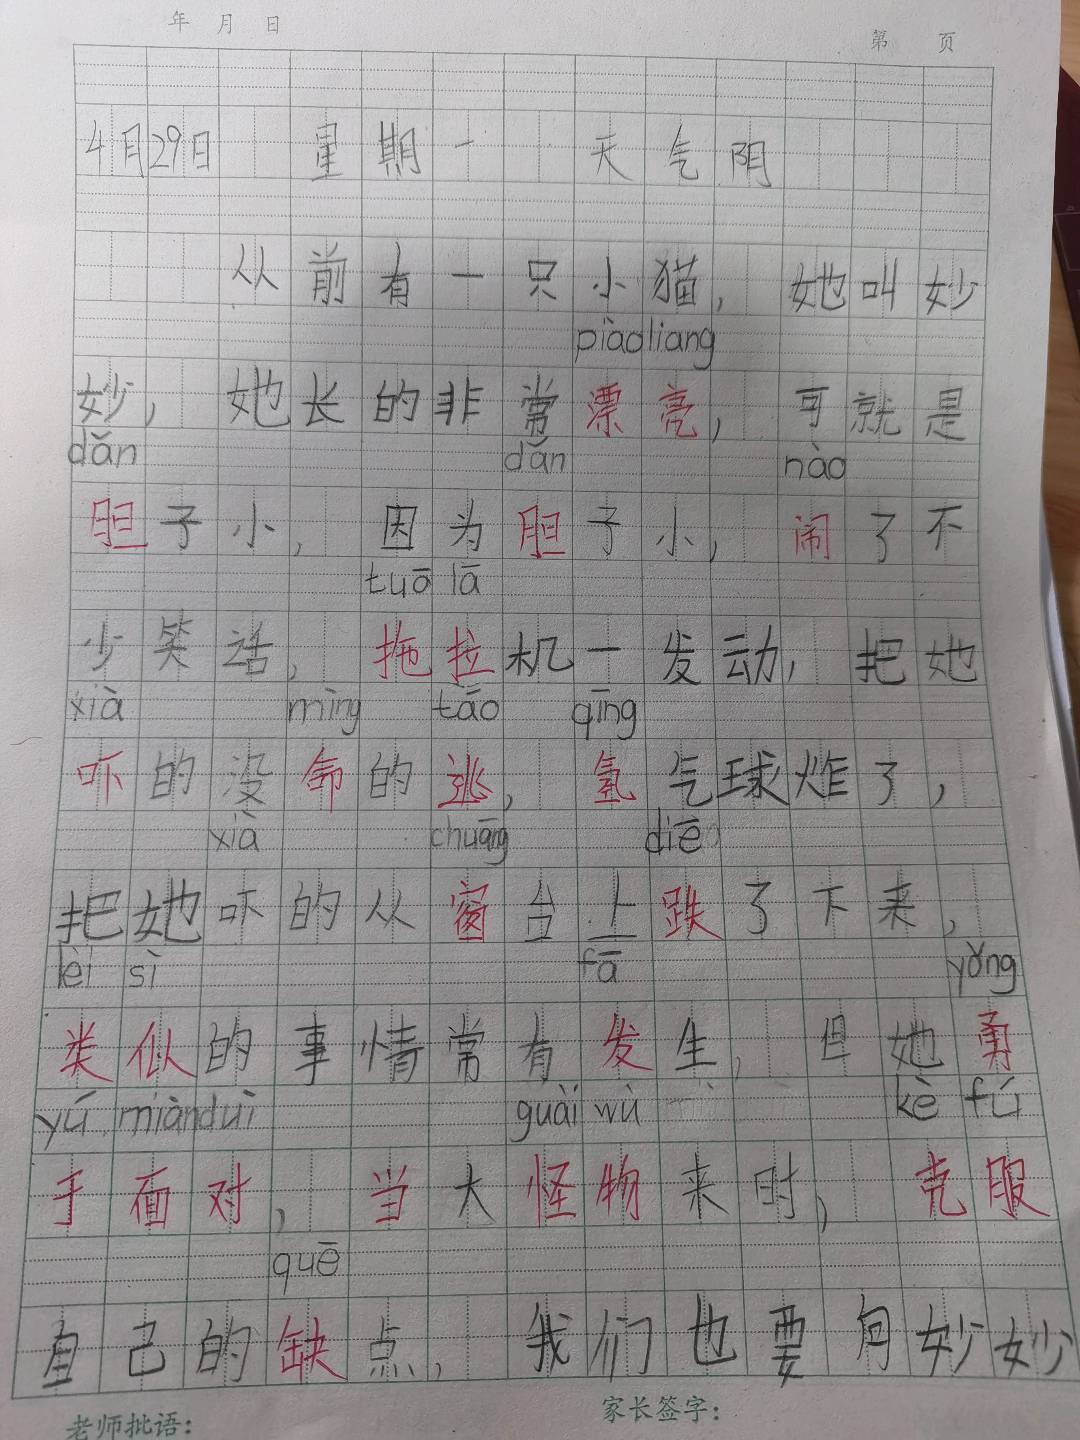 年 月 日 第 页
4月29日 星期一 天气阴
从前有一只小猫，她叫妙
piàoliang
妙，她长的非常漂亮，可就是
dǎn dǎn nào
胆子小，因为胆子小，闹了不
tuō lā
少笑话，拖拉机一发动，把她
xià mìng táo qīng
吓的没命的逃，氢气球炸了，
xià chuāng diē
把她吓的从窗台上跌了下来，
lèi sì fā yǒng
类似的事情常有发生，但她勇
yú miànduì guài wù kè fú
于面对，当大怪物来时，克服
quē
自己的缺点，我们也要向妙妙
老师批语： 家长签字：